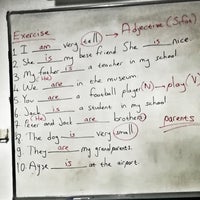 Exercise
Adjective (Sıfat)
1. I am very (tall)
2. She is my best friend She is nice.
3. My father is a teacher in my school
(He)
4. We are in the museum
5. You are a football player (N) → play (V)
6. Jack is a student in my school
(He)
7. Peter and Jack are brothers
parents
8. The dog is very (small)
9. They are my grandparents.
10. Ayşe is at the airport.